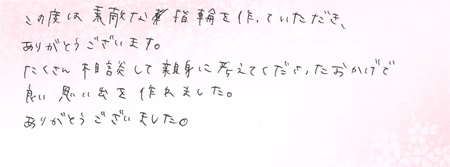 この度は素敵な指輪を作っていただき、
ありがとうございます。
たくさん相談して親身に考えてくださったおかげで
良い思い出を作れました。
ありがとうございました。